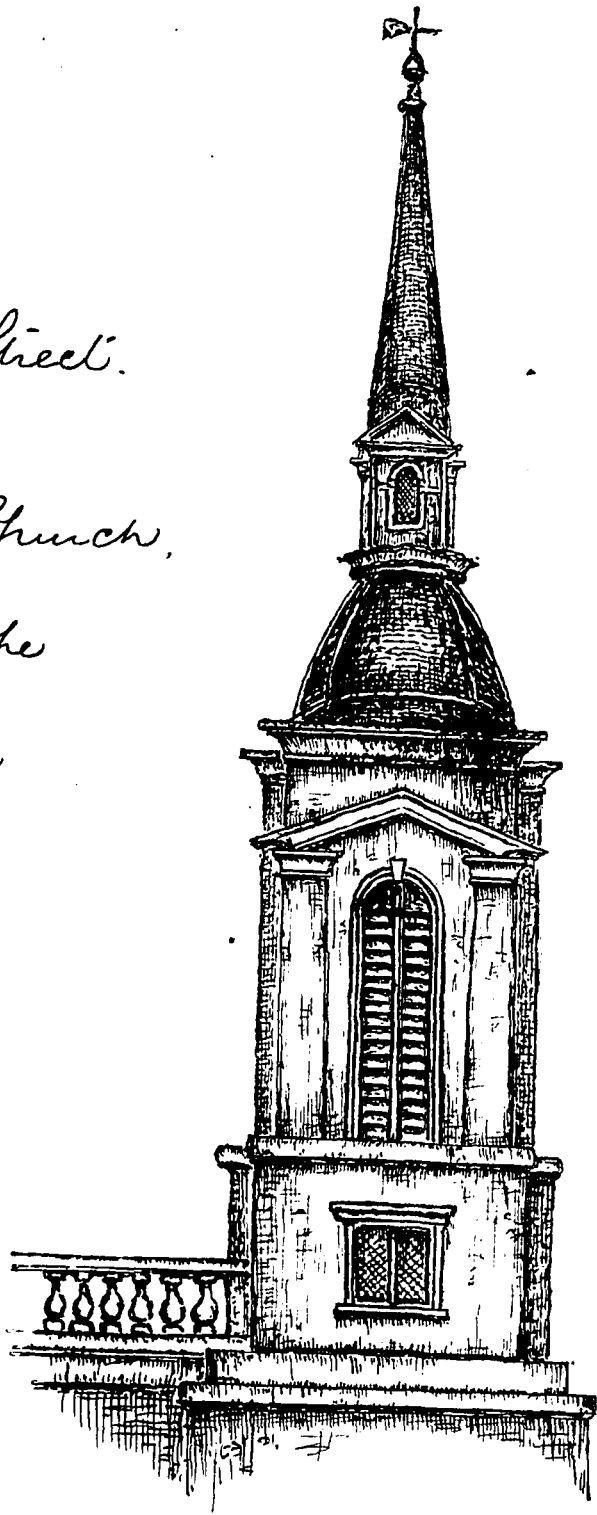 Street.
Church,
the